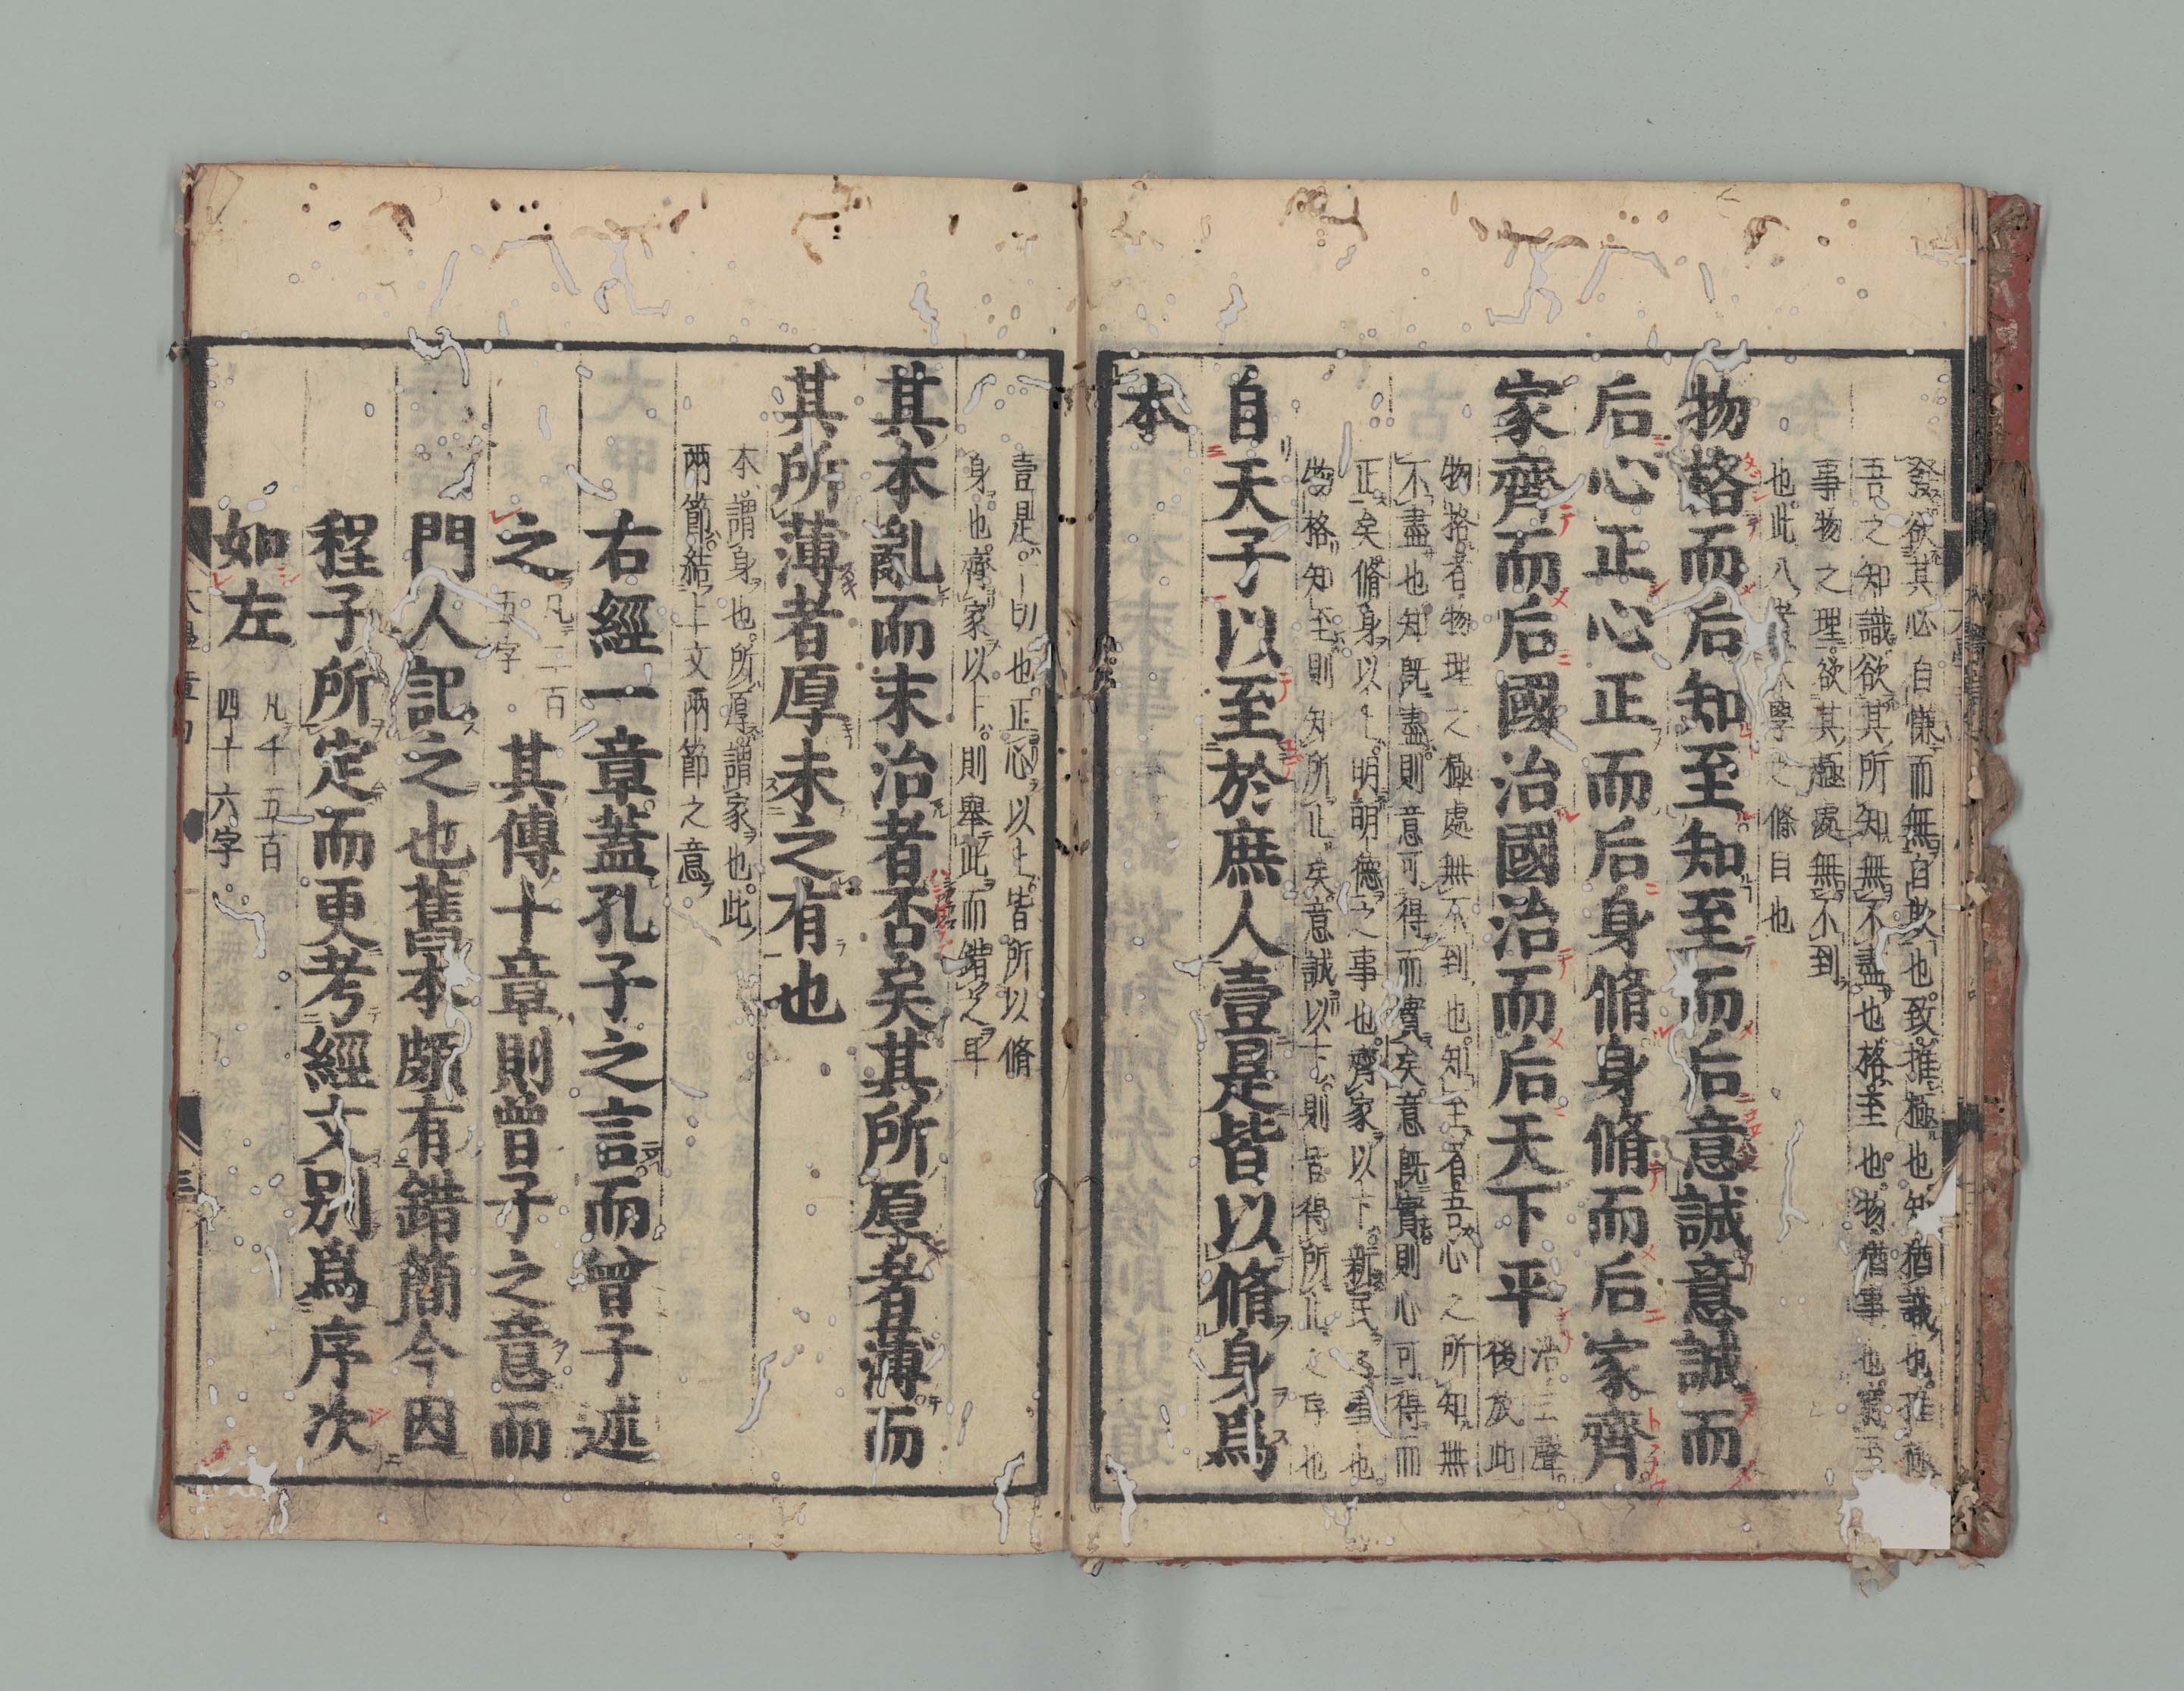 發欲其必自慊而無自欺也致推極也知猶識也推極
吾之知識欲其所知無不盡也格至也物猶事也窮至
事物之理欲其極處無不到
也此八者大學之條目也
物格而后知至知至而后意誠意誠而
后心正心正而后身脩身脩而后家齊
家齊而后國治國治而后天下平
治去聲
後放此
物格者物理之極處無不到也知至者吾心之所知無
不盡也知既盡則意可得而實矣意既實則心可得而
正矣脩身以上明明德之事也齊家以下新民之事也
物格知至則知所止矣意誠以下則皆得所止之序也
自天子以至於庶人壹是皆以脩身爲
本
壹是一切也正心以上皆所以脩
身也齊家以下則舉此而錯之耳
其本亂而末治者否矣其所厚者薄而
其所薄者厚未之有也
本謂身也所厚謂家也此
兩節結上文兩節之意
右經一章蓋孔子之言而曾子述
之
凡二百
五字
其傳十章則曾子之意而
門人記之也舊本頗有錯簡今因
程子所定而更考經文別爲序次
如左
凡千五百
四十六字
大學章句
三